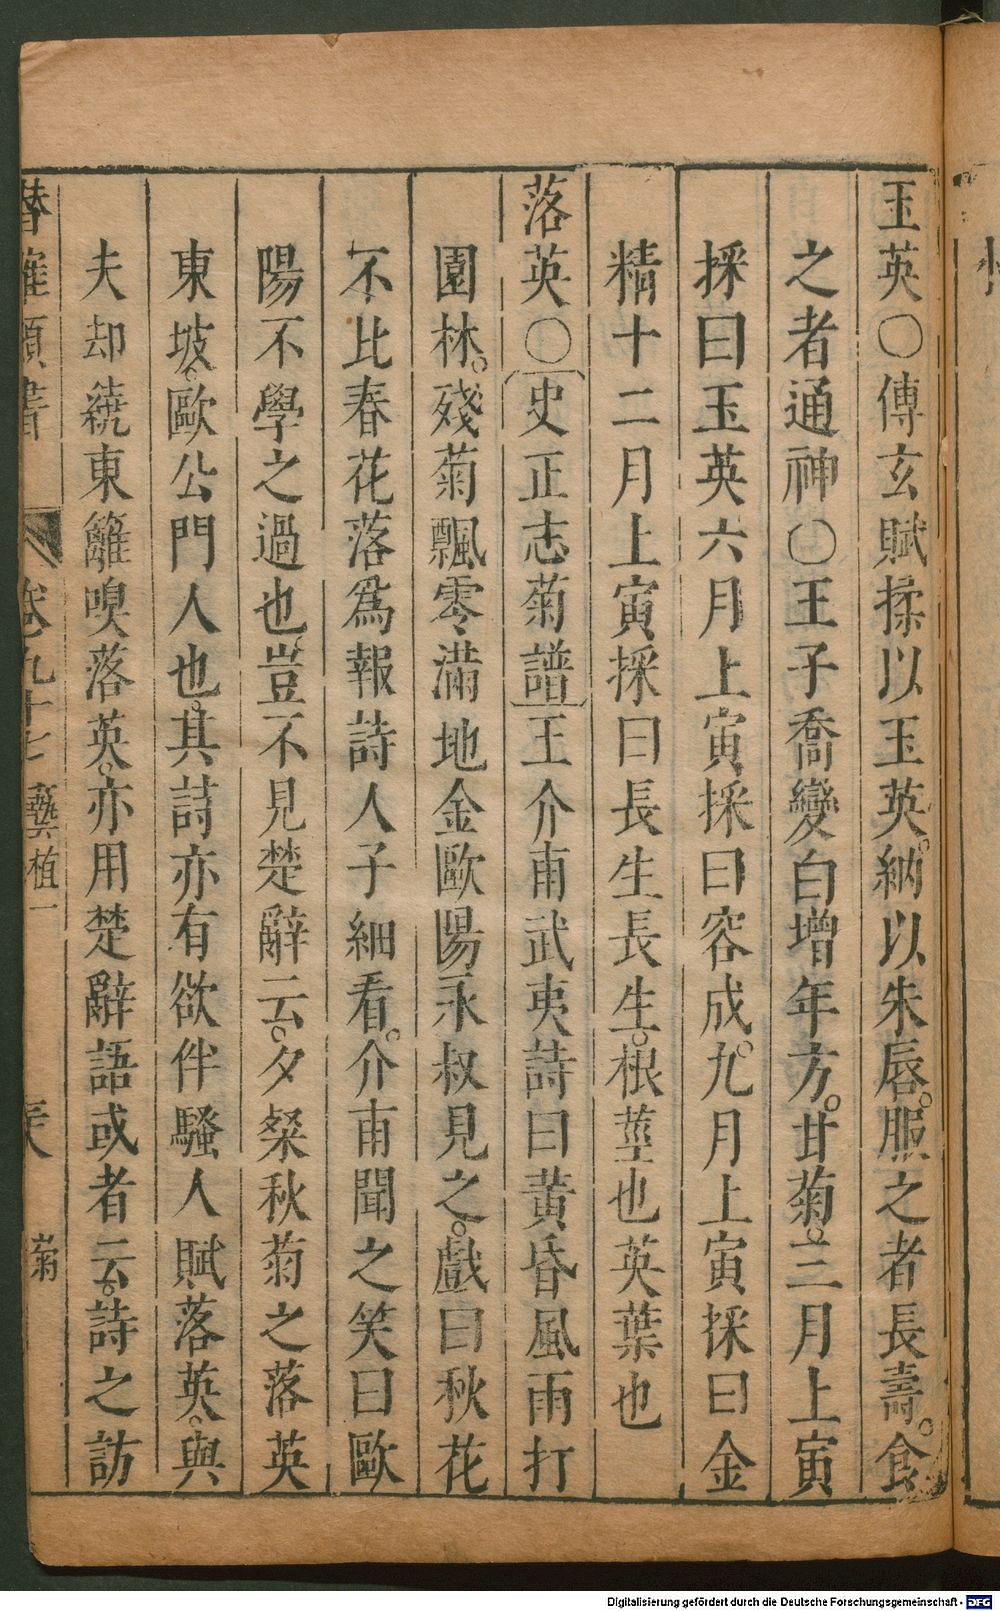 玉英〇傳玄賦揉以玉英。納以朱唇。服之者長壽。食
之者通神〇王子喬變白增年方。甘菊。三月上寅
採曰玉英六月上寅採曰容成。九月上寅採曰金
精十二月上寅採曰長生長生。根莖也英葉也
落英〇史正志菊譜王介甫武夷詩曰黃昏風雨打
園林。殘菊飄零滿地金歐陽永叔見之。戲曰秋花
不比春花落爲報詩人子細看。介甫聞之笑曰歐
陽不學之過也豈不見楚辭云。夕粲秋菊之落英
東坡。歐公門人也。其詩亦有欲伴騷人賦落英。與
夫却繞東籬嗅落英。亦用楚辭語或者云。詩之訪
潛確類書 卷九十七 藝植一 菊
Digitalisierung gefördert durch die Deutsche Forschungsgemeinschaft - DFG